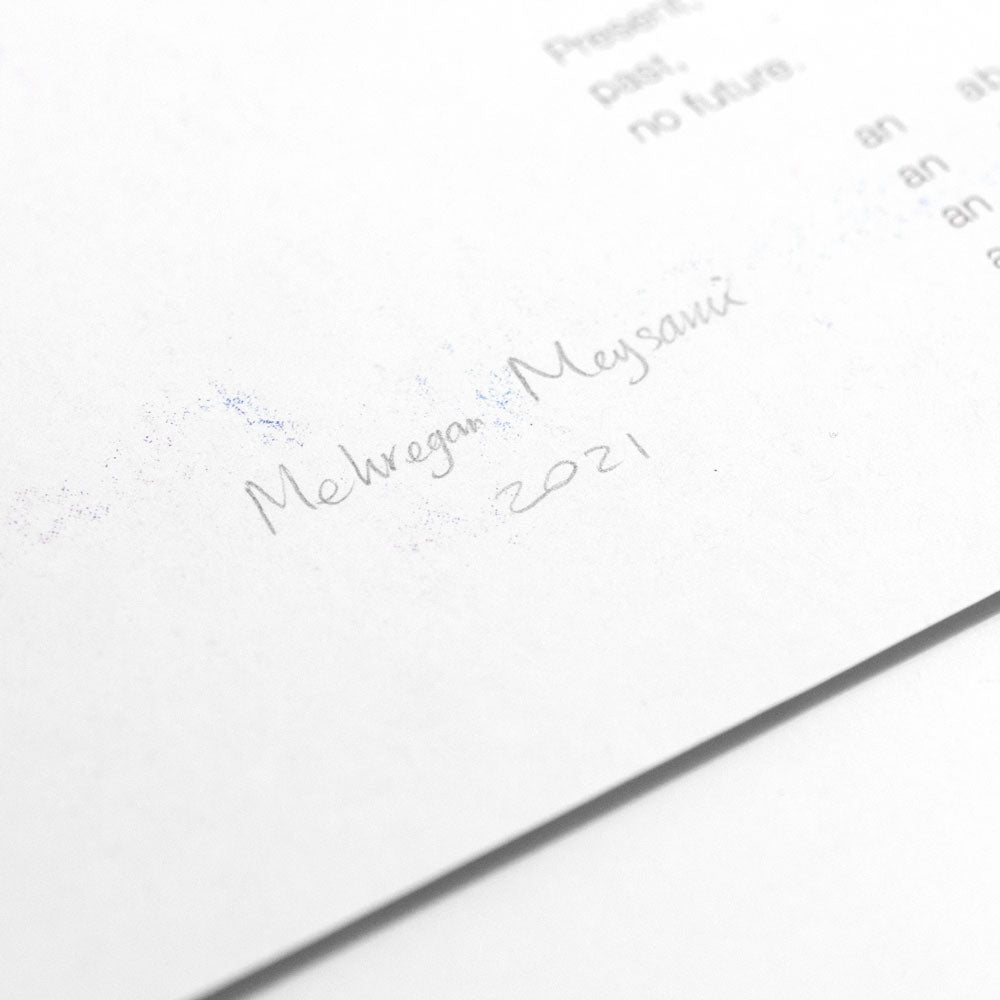 Present,
past,
no future.
an
an
an
Mehregan Meysami
2021